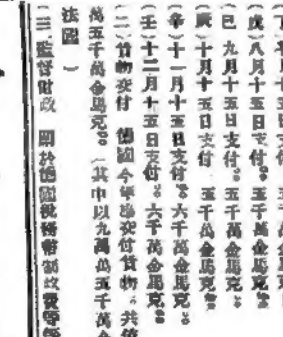 (戊)八月十五日支付。五千萬金馬克。
(巳)九月十五日支付　五千萬金馬克。
(庚)十月十五日支付　五千萬金馬克。
(辛)十一月十五日支付。六千萬金馬克。
(壬)十二月十五日支付。六千萬金馬克。
(二)貨物交付　德國今年應交付貨物。共值
萬五千萬金馬克。(其中以九萬萬五千萬金
法國)
(三)監督財政　關於德國稅務幣制政費等